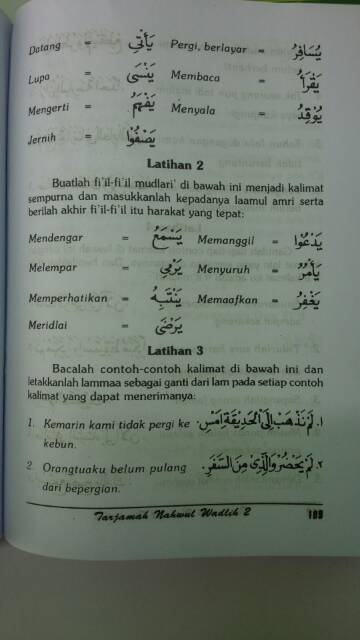 Datang = يَأْتِي Pergi, berlayar = يُسَافِرُ
Lupa = يَنْسَى Membaca = يَقْرَأُ
Mengerti = يَفْهَمُ Menyala = يُوْقِدُ
Jernih = يَصْفُوْا
Latihan 2
Buatlah fi'il-fi'il mudlari' di bawah ini menjadi kalimat
sempurna dan masukkanlah kepadanya laamul amri serta
berilah akhir fi'il-fi'il itu harakat yang tepat:
Mendengar = يَسْمَعُ Memanggil = يَدْعُوْا
Melempar = يَرْمِي Menyuruh = يَأْمُرُ
Memperhatikan = يَنْتَبِهُ Memaafkan = يَغْفِرُ
Meridlai = يَرْضَى
Latihan 3
Bacalah contoh-contoh kalimat di bawah ini dan
letakkanlah lammaa sebagai ganti dari lam pada setiap contoh
kalimat yang dapat menerimanya:
1. Kemarin kami tidak pergi ke ١. لَمْ نَذْهَبْ إِلَى الْحَدِيْقَةِ اَمْسِ.
kebun.
2 Orangtuaku belum pulang ٢. لَمْ يَحْضُرْ وَالِدِيْ مِنَ السَّفَرِ.
dari bepergian.
Tarjamah Nahwul Wadlih 2 109